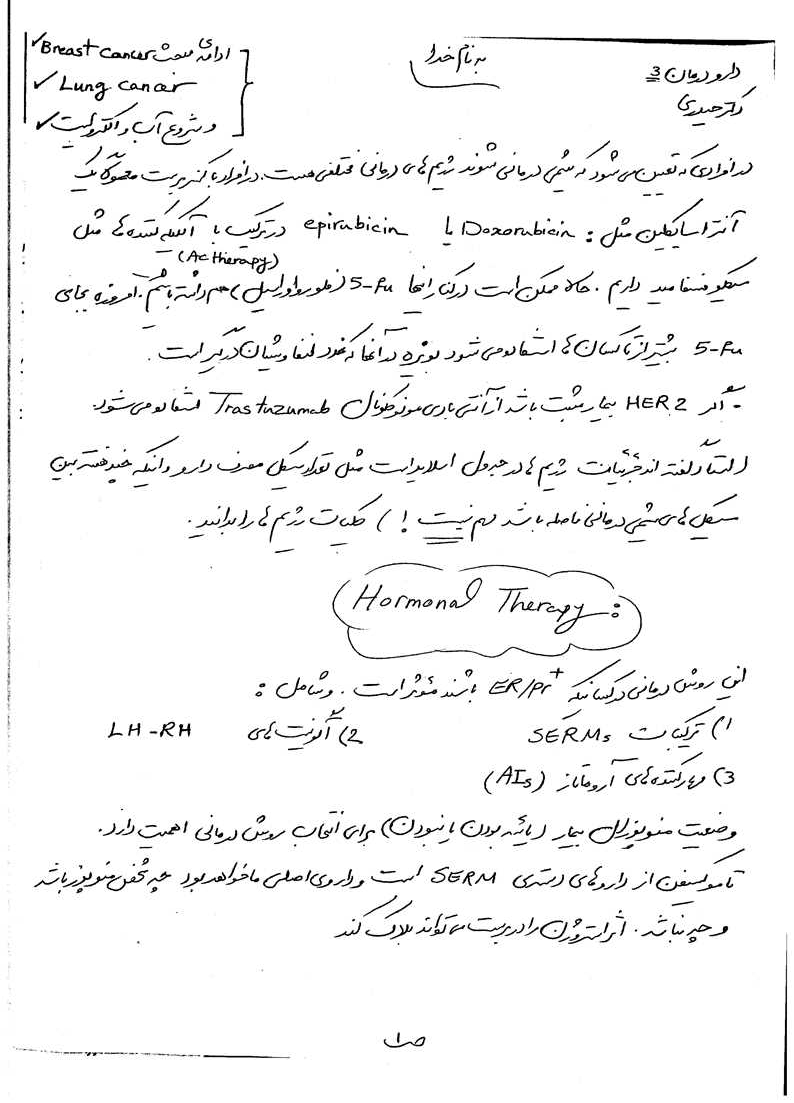 به نام خدا
دارو درمان 3
دکتر حیدری
ادامه‌ی مبحث Breast cancer ✓
✓ Lung cancer
و شروع آب و الکترولیت ✓
در افرادی که تعیین می شود که شیمی درمانی شوند رژیم های درمانی مختلفی هست. در افراد با کنسر برست معمولاً یک
آنتراسایکلین مثل : Doxorubicin یا epirubicin در ترکیب با آلکیله کننده ها مثل
(AC therapy)
سیکلوفسفامید داریم. حالا ممکن است در کنار اینها 5-Fu (فلورواوراسیل) هم داشته باشیم. امروزه بجای
5-Fu بیشتر از تاکسان ها استفاده می شود بویژه در آنها که غدد لنفاویشان درگیر است.
- اگر HER2 بیمار مثبت باشد از آنتی بادی مونوکلونال Trastuzumab استفاده می شود.
(استاد گفته اند جزئیات رژیم ها در جدول اسلاید است مثل تعداد سیکل مصرف دارو و اینکه چند هفته بین
سیکل های شیمی درمانی فاصله باشد مهم نیست !) کلیات رژیم ها را بدانید.
Hormonal Therapy :
این روش درمانی در کسانیکه ER/Pr+ باشند مؤثر است. و شامل :
1) ترکیبات SERMs 2) آگونیست های LH-RH
3) مهارکننده های آروماتاز (AIs)
وضعیت منوپوزال بیمار (یائسه بودن یا نبودن) برای انتخاب روش درمانی اهمیت دارد.
تاموکسیفن از داروهای دسته‌ی SERM است و داروی اصلی ما خواهد بود چه شخص منوپوز باشد
و چه نباشد. اثر استروژن را در برست می تواند بلاک کند
ص1